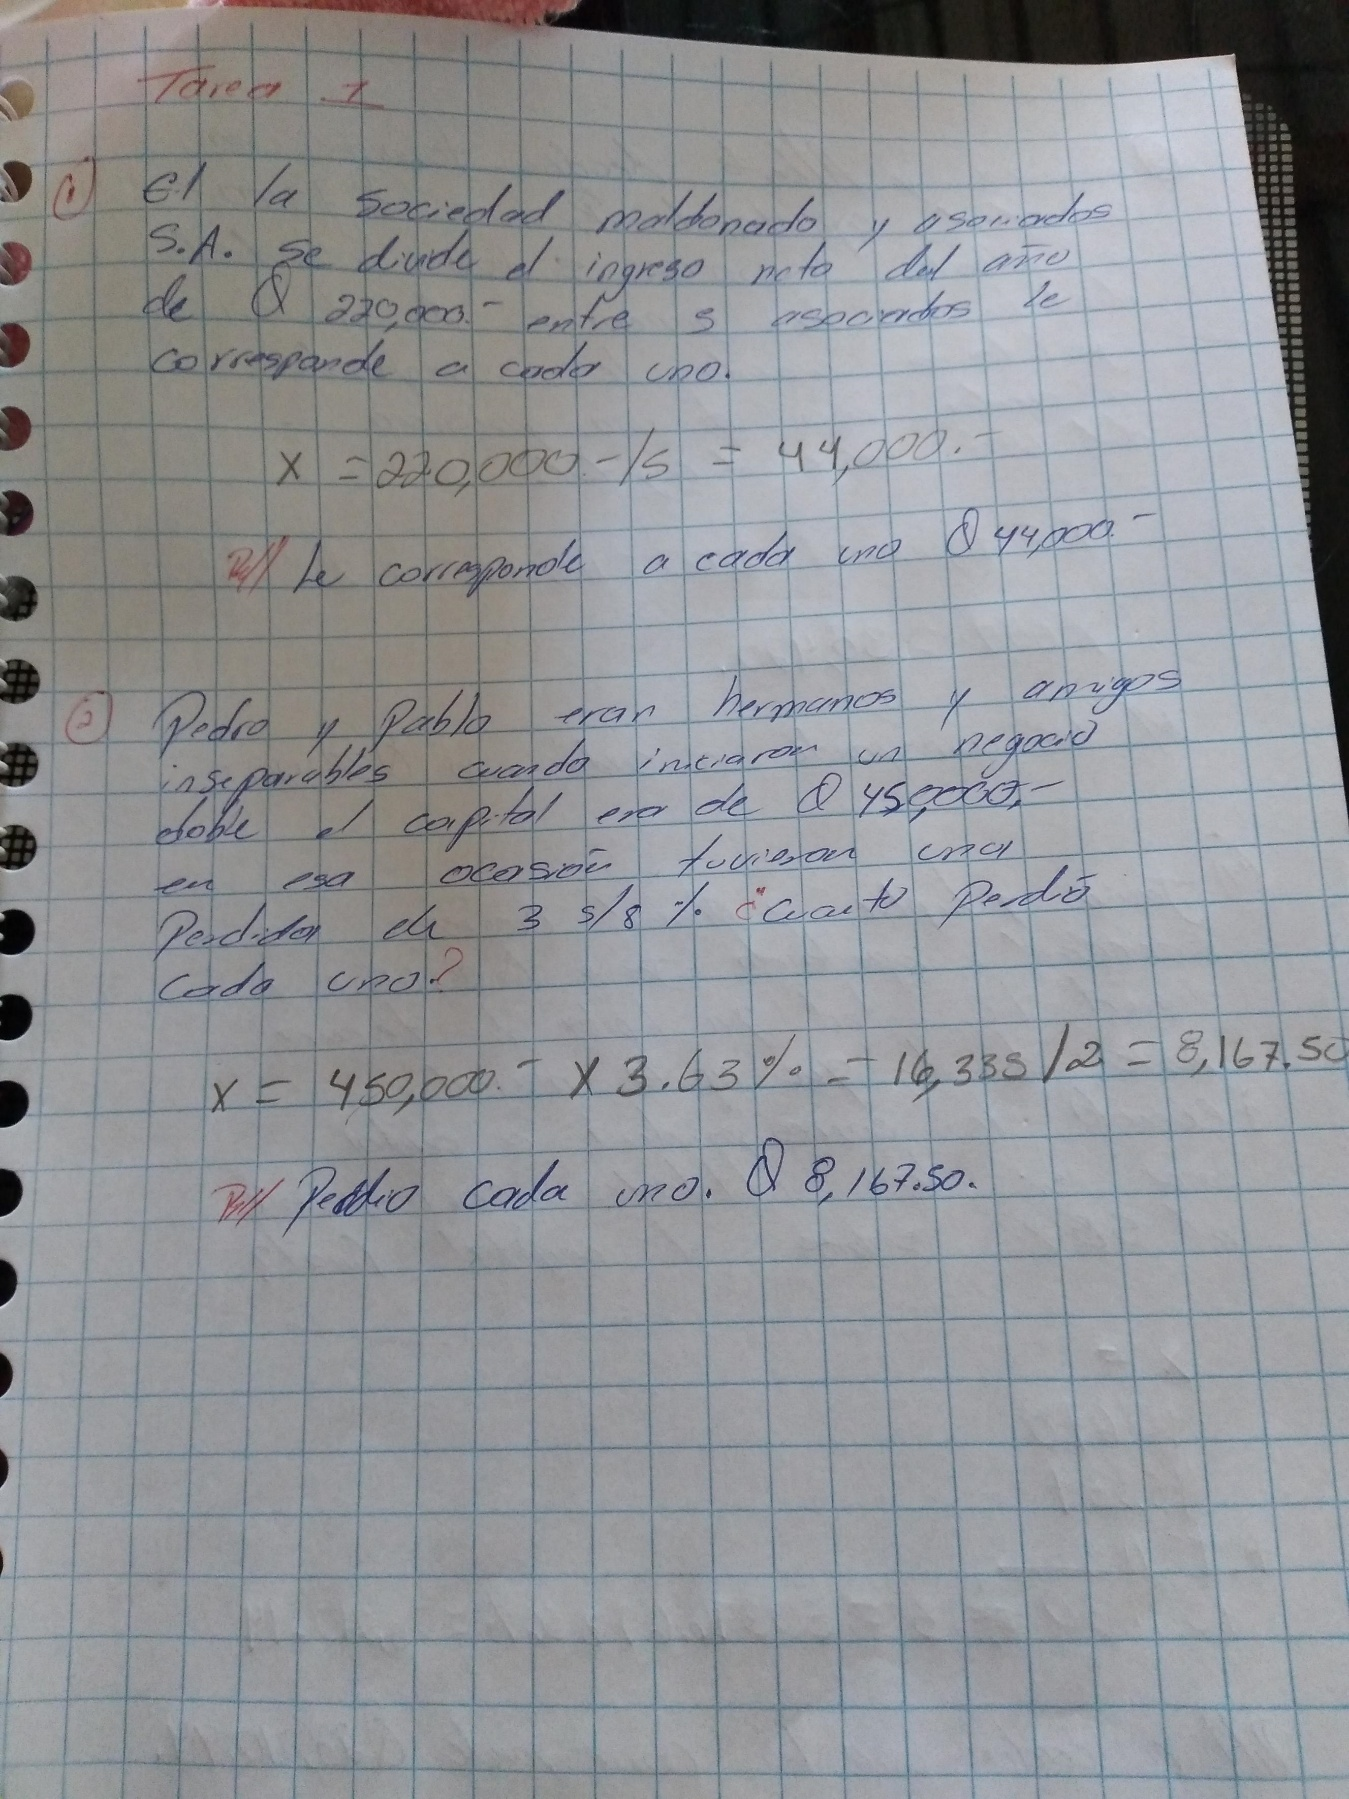 Tarea 1
① El la sociedad maldonado y asociados
S.A. se divide el ingreso neto del año
de Q 220,000.- entre 5 asociados le
corresponde a cada uno.
X = 220,000.-/5 = 44,000.-
R// Le corresponde a cada uno Q 44,000.-
② Pedro y Pablo eran hermanos y amigos
inseparables cuando iniciaron un negocio
doble el capital era de Q 450,000.-
en esa ocasión tuvieron una
Perdida de 3 5/8 % ¿Cuanto Perdió
Cada uno?
X = 450,000.- X 3.63% = 16,335/2 = 8,167.50
R// Perdio cada uno. Q 8,167.50.